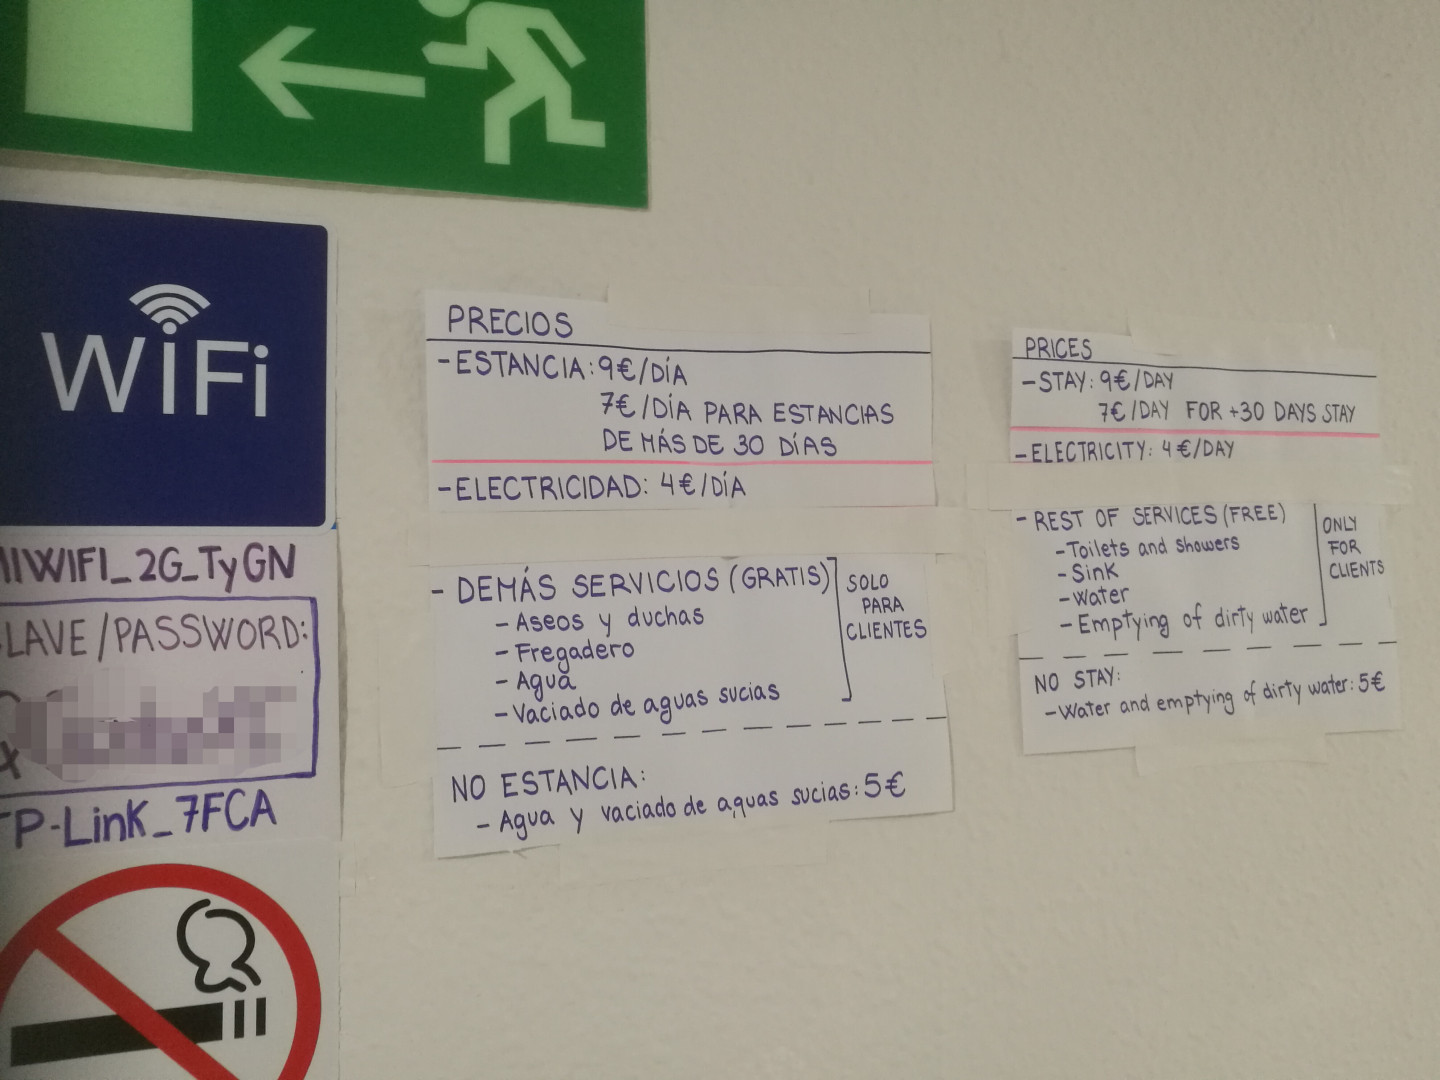 WiFi
MIWIFI_2G_TyGN
CLAVE/PASSWORD:
TP-LinK_7FCA
PRECIOS
-ESTANCIA: 9€/DÍA
7€/DÍA PARA ESTANCIAS
DE MÁS DE 30 DÍAS
-ELECTRICIDAD: 4€/DÍA
- DEMÁS SERVICIOS (GRATIS)
-Aseos y duchas
-Fregadero
-Agua
-Vaciado de aguas sucias
SOLO
PARA
CLIENTES
NO ESTANCIA:
- Agua y vaciado de aguas sucias: 5€
PRICES
-STAY: 9€/DAY
7€/DAY FOR +30 DAYS STAY
-ELECTRICITY: 4€/DAY
- REST OF SERVICES (FREE)
-Toilets and showers
-Sink
-Water
-Emptying of dirty water
ONLY
FOR
CLIENTS
NO STAY:
-Water and emptying of dirty water: 5€